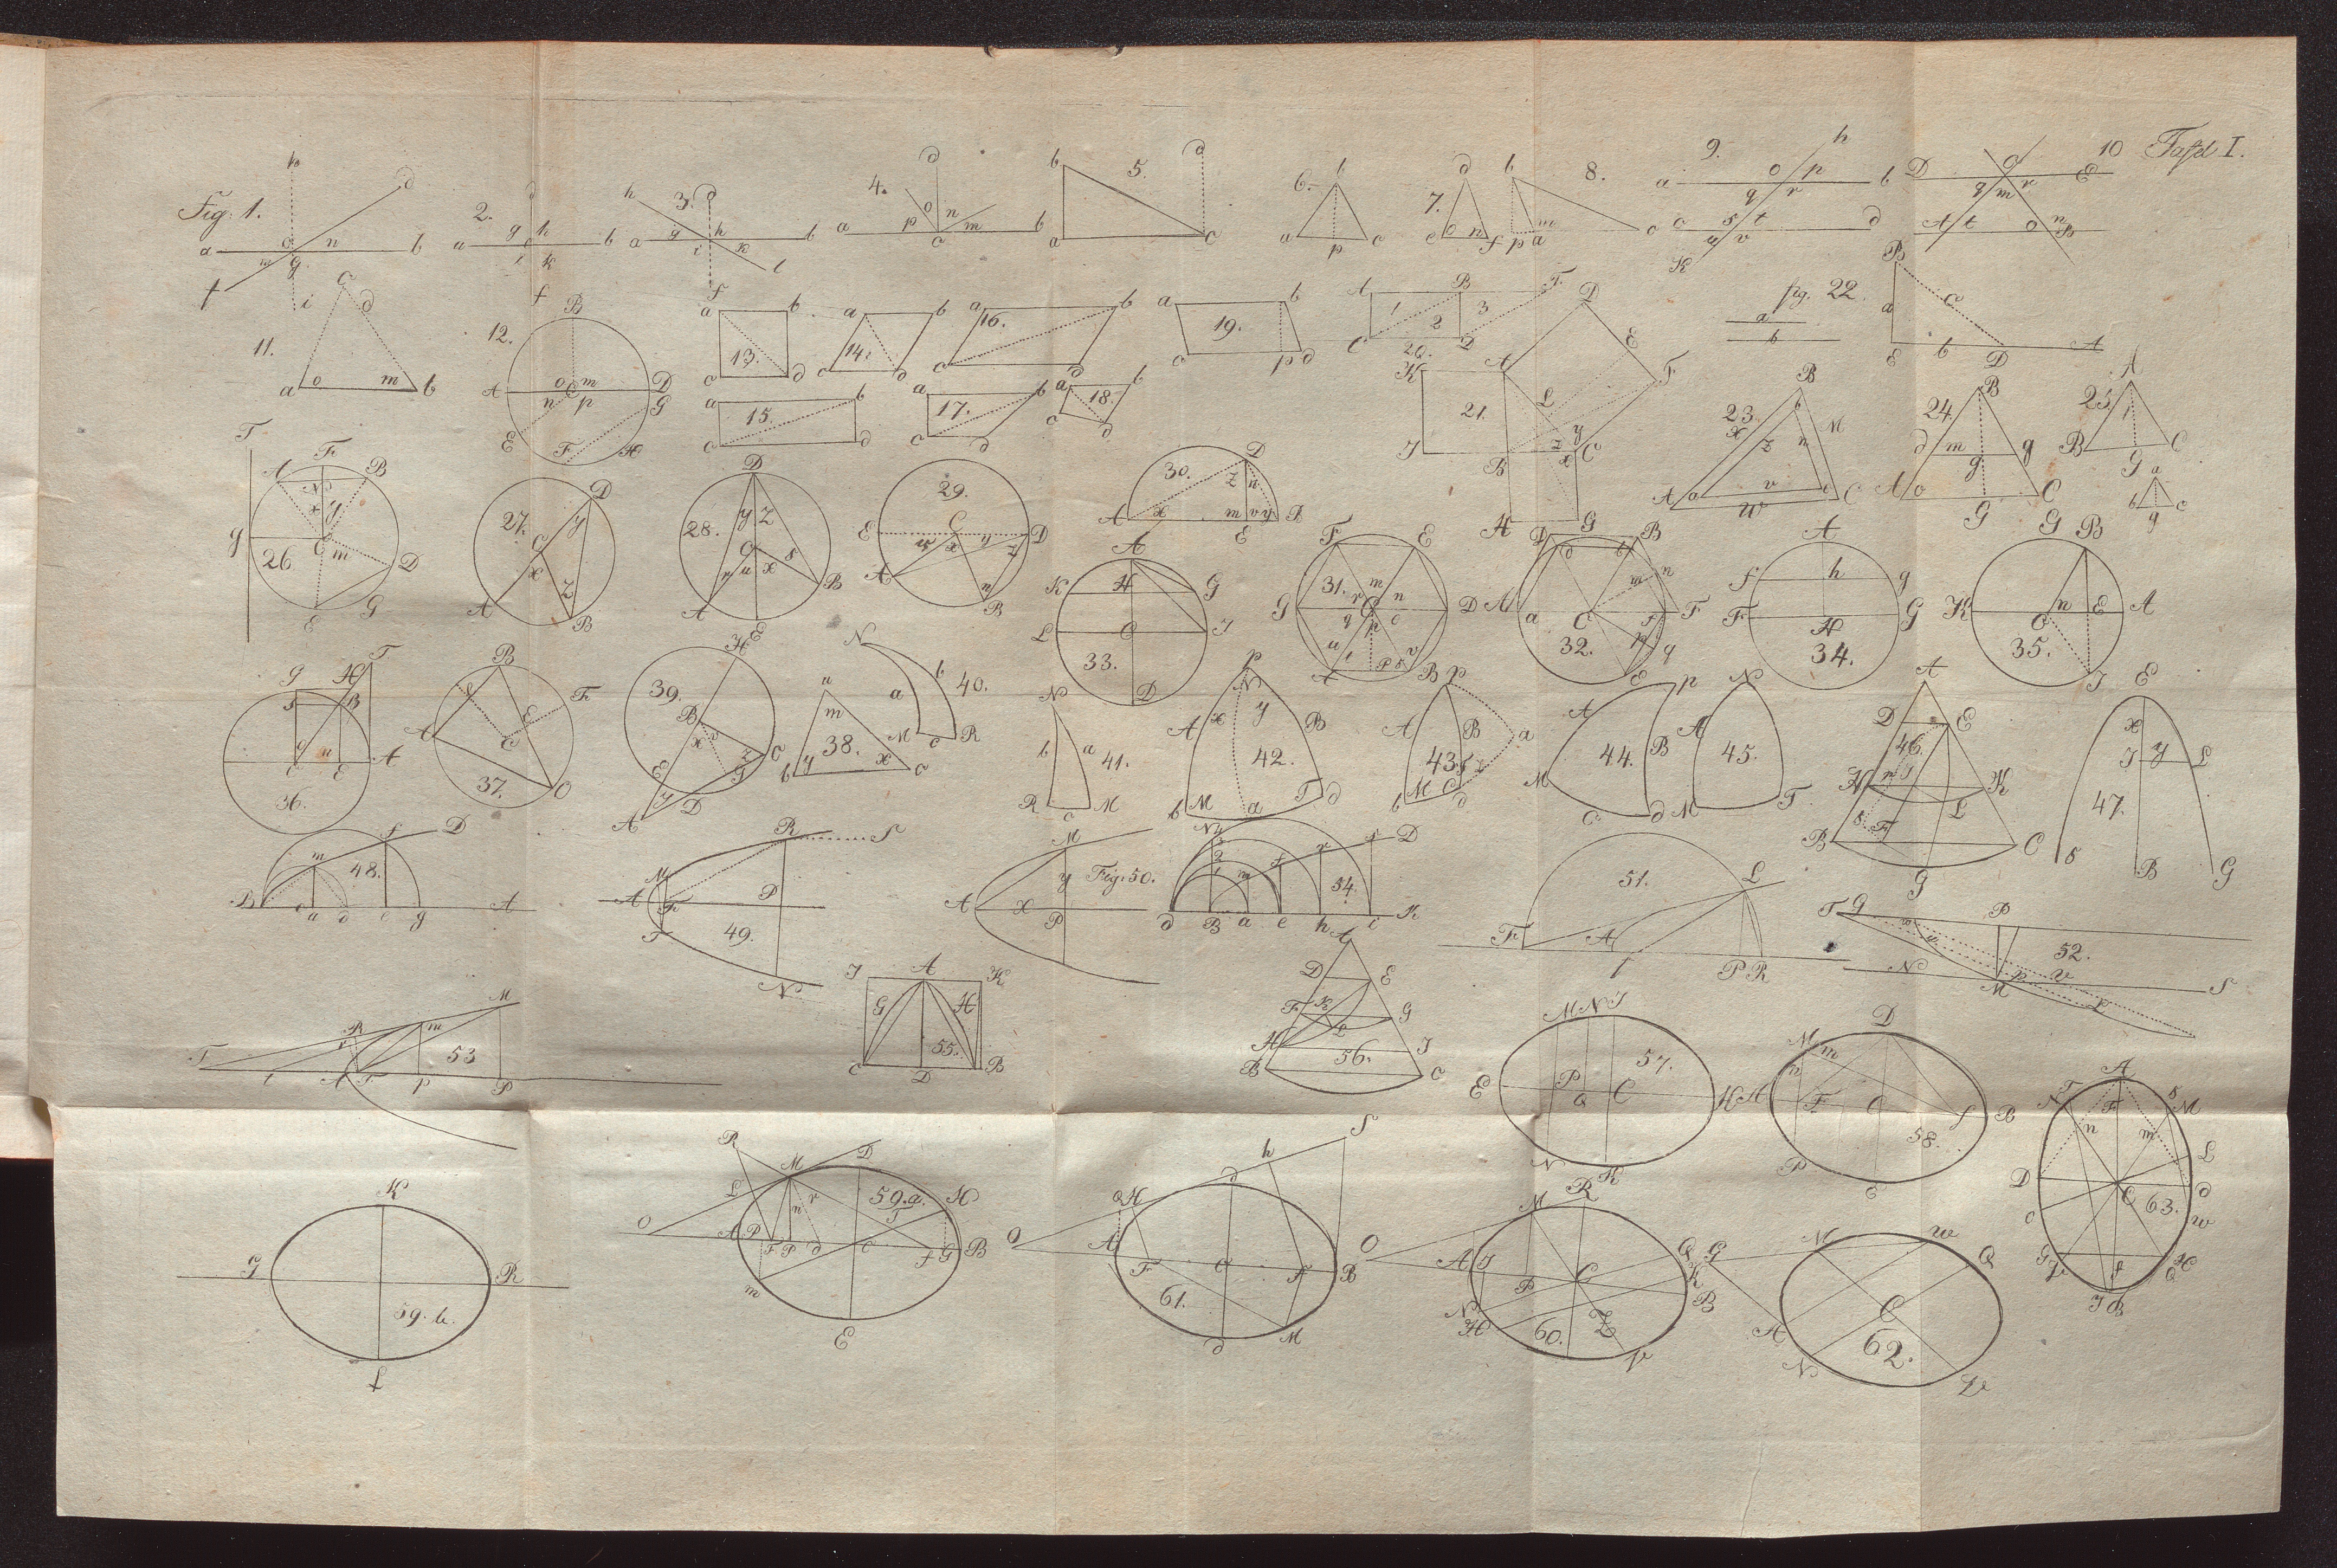 Tafel I.
Fig. 1.
h
d
a
o
n
b
m
g
f
i
2.
d
g
h
a
b
i
k
f
3.
h
d
g
h
a
b
i
k
l
f
4.
d
o
n
p
m
a
c
b
5.
b
d
a
c
6.
b
a
p
c
7.
d
e
o
n
f
8.
b
m
p
a
c
9.
h
a
o
p
b
q
r
c
s
t
d
u
v
K
10
D
C
E
q
m
r
A
t
o
n
B
11.
c
d
a
o
m
b
12.
B
A
o
m
D
n
C
p
G
E
F
H
13.
a
b
c
d
14.
a
b
c
d
15.
a
b
c
d
16.
a
b
c
d
17.
a
b
c
d
18.
a
b
c
d
19.
a
b
c
p
d
20.
A
B
F
1
2
3
C
D
21.
D
E
A
F
K
L
y
z
C
J
B
x
H
G
fig. 22.
a
b
B
a
c
E
b
D
A
23.
B
b
x
z
n
M
A
a
v
c
C
w
24.
B
d
m
g
g
A
o
C
G
25.
A
B
C
G
a
b
c
g
26
T
A
F
B
N
x
y
g
C
m
D
E
G
27.
D
y
C
x
z
A
B
28.
D
y
z
C
s
u
x
A
B
E
29.
C
E
D
x
y
z
A
n
B
30.
D
z
n
A
x
m
v
y
B
E
31.
F
E
m
r
n
G
C
D
q
p
u
A
P
v
B
32.
D
B
d
b
m
n
A
a
C
f
F
p
q
E
33.
A
K
H
G
L
C
J
D
34.
A
f
h
g
F
G
H
35.
G
B
K
n
E
A
C
J
36.
G
H
T
B
C
E
A
37.
B
F
A
E
C
38.
a
m
b
y
x
c
39.
H
B
x
z
C
E
y
D
A
40.
N
b
a
M
c
R
41.
N
b
a
R
c
M
42.
p
N
A
x
y
B
b
M
a
T
d
43.
p
A
B
a
b
M
C
d
44.
A
p
B
M
c
d
45.
N
A
M
T
46.
A
D
E
H
K
L
B
F
C
G
47.
E
x
J
y
L
s
B
G
48.
f
D
m
B
c
a
d
e
g
A
49.
R
S
M
A
F
P
T
N
Fig. 50.
M
y
A
x
P
51.
L
F
A
f
P
R
52.
T
g
P
N
M
p
S
53
M
R
m
T
t
A
F
p
P
54.
D
d
B
a
e
h
i
K
55.
J
A
K
G
H
C
D
B
56.
A
D
E
F
K
G
L
H
J
B
C
57.
M
N
J
E
P
Q
C
H
N
K
58.
D
M
m
n
A
F
C
f
B
P
E
59.a.
R
M
D
L
r
H
T
n
O
A
P
F
P
d
C
f
G
B
m
E
59.b.
K
G
R
f
60.
M
R
O
A
J
P
C
Q
K
B
N
H
Z
V
61.
S
h
d
Q
H
O
A
F
C
F
B
M
d
62.
G
M
w
Q
C
A
N
V
63.
A
T
N
F
s
M
n
m
L
D
C
d
c
w
G
f
H
Q
J
B